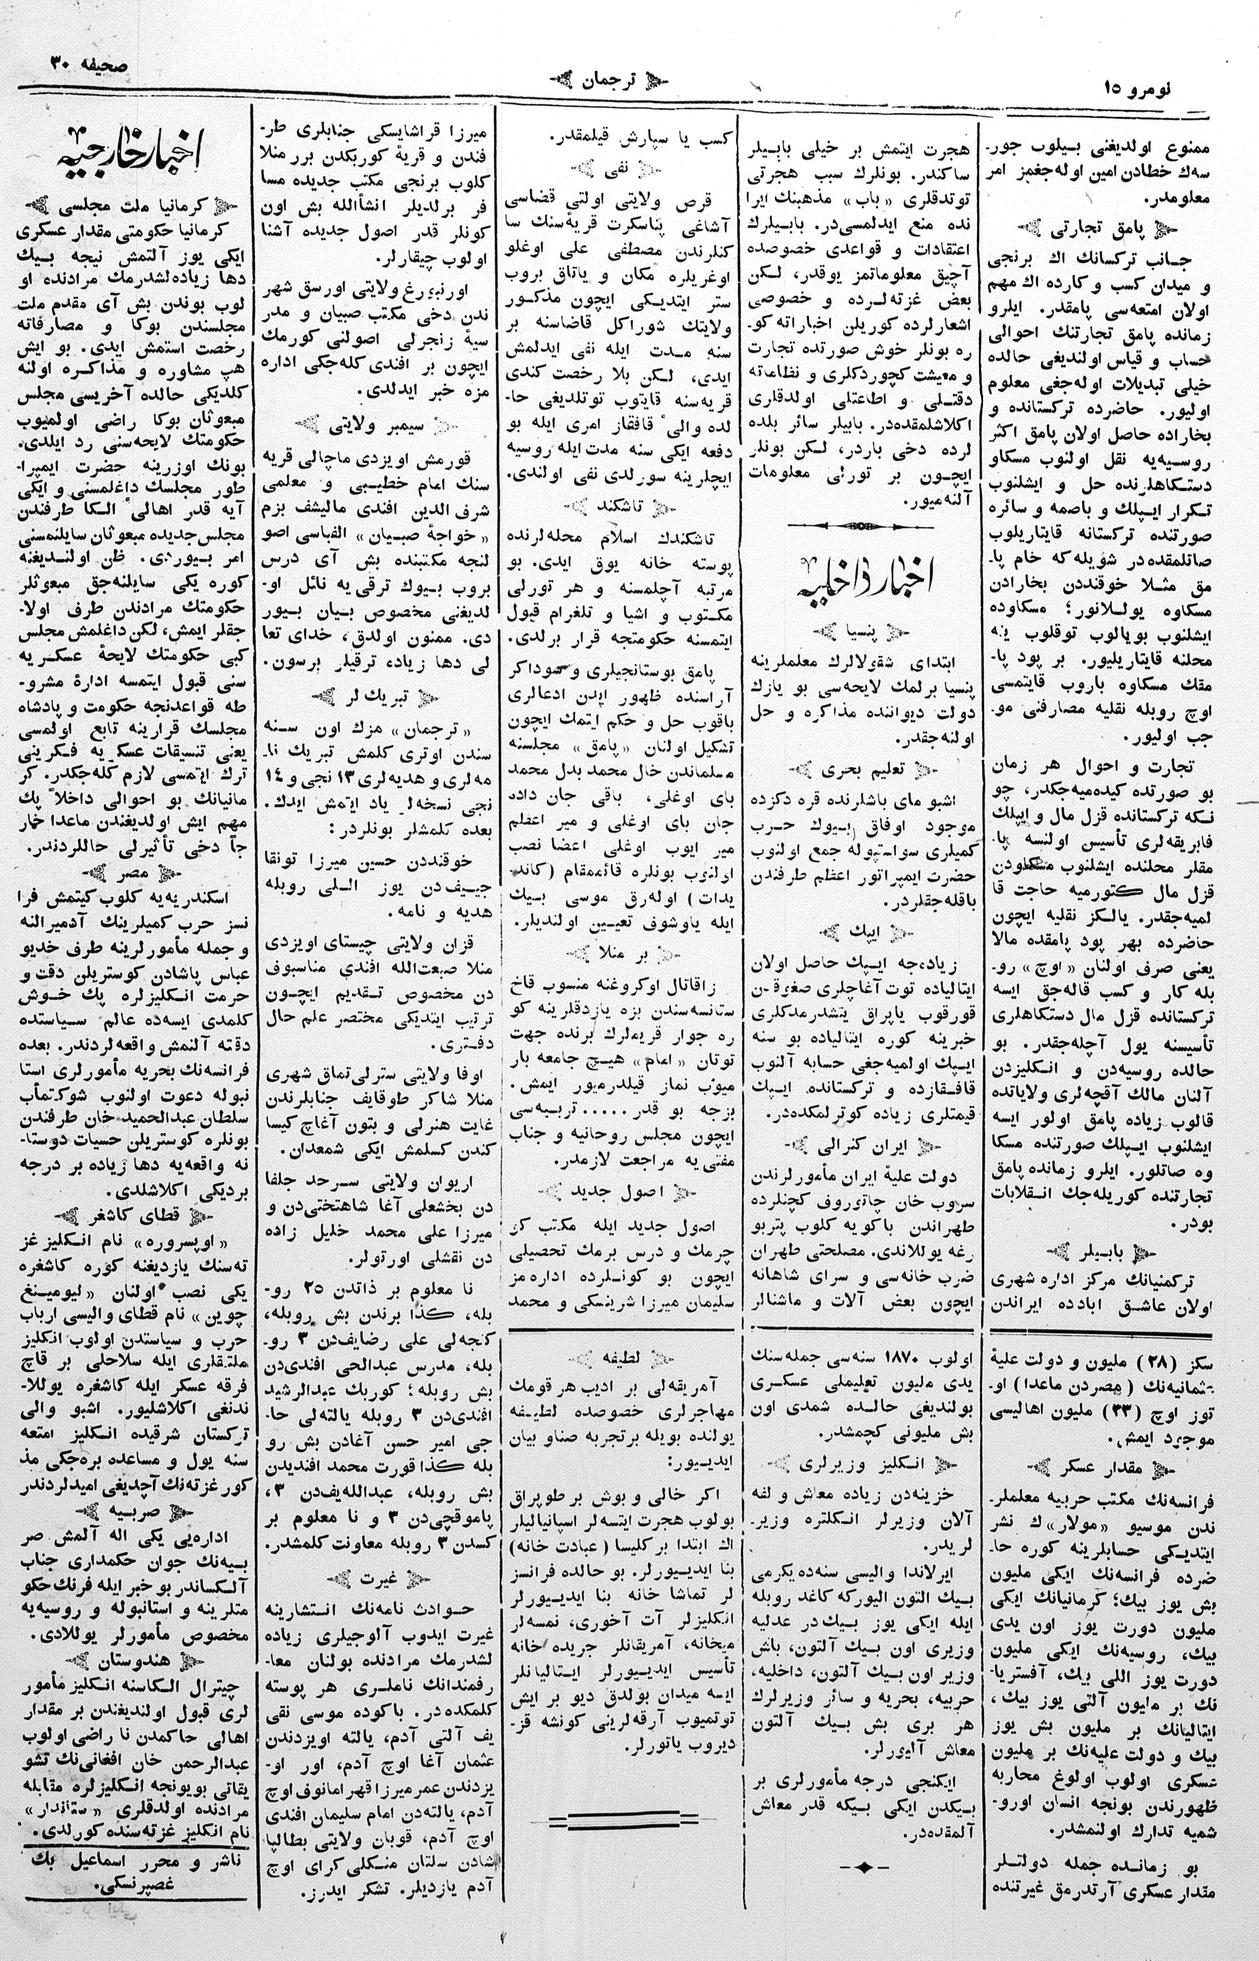 نومرو ۱۵
ترجمان
صحیفه ۳۰
ممنوع اولدیغنی بیلوب جور-
سه‌ك خطادن امین اوله‌جغمز امر
معلومدر.
پامق تجارتی
جانب ترکسانك اك برنجی
و میدان کسب و کارده اك مهم
اولان امتعه‌سی پامقدر. ایلرو
زمانده پامق تجارتنك احوالی
حساب و قیاس اولندیغی حالده
خیلی تبدیلات اوله‌جغی معلوم
اولیور. حاضرده ترکستانده و
بخاراده حاصل اولان پامق اکثر
روسیه‌یه نقل اولنوب مسکاو
دستکاهلرنده حل و ایشلنوب
تکرار ایپلك و باصمه و سائره
صورتنده ترکستانه قایتاریلوب
صاتلمقده‌در شویله که خام پا-
مق مثلا خوقنددن بخارادن
مسکاوه یوللانور؛ مسکاوده
ایشلنوب بویالوب توقلوب ینه
محلنه قایتاریلیور. بر پود پا-
مقك مسکاوه باروب قایتمسی
اوچ روبله نقلیه مصارفنی مو-
جب اولیور.
تجارت و احوال هر زمان
بو صورتده کیده‌میه‌جکدر، چو
نکه ترکستانده قزل مال و ایپلك
فابریقه‌لری تأسیس اولنسه پا-
مقلر محلنده ایشلنوب مسکودن
قزل مال کتورمیه حاجت قا
لمیه‌جقدر. یالکز نقلیه ایچون
حاضرده بهر پود پامقده مالا
یعنی صرف اولنان «اوچ» رو-
بله کار و کسب قاله‌جق ایسه
ترکستانده قزل مال دستکاهلری
تأسیسنه یول آچله‌جقدر. بو
حالده روسیه‌دن و انکلیزدن
آلنان مالك آقچه‌لری ولایاتده
قالوب زیاده پامق اولور ایسه
ایشلنوب ایپلك صورتنده مسکا
وه صاتلور. ایلرو زمانده پامق
تجارتنده کوریله‌جك انقلابات
بودر.
بابیلر
ترکمنیانك مرکز اداره شهری
اولان عاشق ابادده ایراندن
هجرت ایتمش بر خیلی بابیلر
ساکندر. بونلرك سبب هجرتی
توتدقلری «باب» مذهبنك ایرا
نده منع ایدلمسی‌در. بابیلرك
اعتقادات و قواعدی خصوصده
آچیق معلوماتمز یوقدر، لکن
بعض غزته‌لرده و خصوصی
اشعارلرده کوریلن اخباراته کو-
ره بونلر خوش صورتده تجارت
و معیشت کچوردکلری و نظاماته
دقتلی و اطاعتلی اولدقلری
اکلاشلمقده‌در. بابیلر سائر بلده
لرده دخی باردر، لکن بونلر
ایچون بر تورلی معلومات
آلنه‌میور.
اخبار داخلیه
پنسیا
ابتدای شقولالرك معلملرینه
پنسیا برلمك لایحه‌سی بو یازك
دولت دیواننده مذاکره و حل
اولنه‌جقدر.
تعلیم بحری
اشبو مای باشلرنده قره دکزده
موجود اوفاق بیوك حرب
کمیلری سواستپوله جمع اولنوب
حضرت ایمپراتور اعظم طرفندن
باقله‌جقلردر.
ایپك
زیاده‌جه ایپك حاصل اولان
ایتالیاده توت آغاچلری صغوقدن
قورقوب یاپراق یتشدرمدکلری
خبرینه کوره ایتالیاده بو سنه
ایپك اولمیه‌جغی حسابه آلنوب
قافقازده و ترکستانده ایپك
قیمتلری زیاده کوترلمکده‌در.
ایران کنرالی
دولت علیهٔ ایران مأمورلرندن
سروب خان چاتوروف کچنلرده
طهراندن باکویه کلوب پتربو
رغه یوللاندی. مصلحتی طهران
ضرب خانه‌سی و سرای شاهانه
ایچون بعض آلات و ماشنالر
کسب یا سپارش قیلمقدر.
نفی
قرص ولایتی اولتی قضاسی
آشاغی پناسکرت قریه‌سنك سا
کنلرندن مصطفی علی اوغلو
اوغریلره مکان و یاتاق بروب
ستر ایتدیکی ایچون مذکور
ولایتك شوراکل قاضاسنه بر
سنه مدت ایله نفی ایدلمش
ایدی، لکن بلا رخصت کندی
قریه‌سنه قایتوب توتلدیغی حا-
لده والیٔ قافقاز امری ایله بو
دفعه ایکی سنه مدت ایله روسیه
ایچلرینه سورلدی نفی اولندی.
تاشکند
تاشکندك اسلام محله‌لرنده
پوسته خانه یوق ایدی. بو
مرتبه آچلمسنه و هر تورلی
مکتوب و اشیا و تلغرام قبول
ایتمسنه حکومتجه قرار برلدی.
پامق بوستانجیلری و سوداکر
آراسنده ظهور ایدن ادعالری
باقوب حل و حکم ایتمك ایچون
تشکیل اولنان «پامق» مجلسنه
مسلماندن خال محمد بدل محمد
بای اوغلی، باقی جان داده
جان بای اوغلی و میر اعظم
میر ایوب اوغلی اعضا نصب
اولنوب بونلره قائممقام (کاند
یدات) اوله‌رق موسی بیك
ایله یاوشوف تعیین اولندیلر.
بر منلا
زاقاتال اوکروغنه منسوب قاخ
ستانسه‌سندن بزه یازدقلرینه کو
ره جوار قریه‌لرك برنده جهت
توتان «امام» هیچ جامعه بار
میوب نماز قیلدرمیور ایمش.
بزجه بو قدر..... تربیه‌سی
ایچون مجلس روحانیه و جناب
مفتی‌یه مراجعت لازمدر.
اصول جدید
اصول جدید ایله مکتب کز
چرمك و درس برمك تحصیلی
ایچون بو کونلرده اداره‌مز
سلیمان میرزا شرینسکی و محمد
میرزا قراشایسکی جنابلری طر-
فندن و قریهٔ کوربکدن برر منلا
کلوب برنجی مکتب جدیده مسا
فر برلدیلر انشأالله بش اون
کونلر قدر اصول جدیده آشنا
اولوب چیقارلر.
اورنبورغ ولایتی اورسق شهر
ندن دخی مکتب صبیان و مدر
سیهٔ زنجرلی اصولنی کورمك
ایچون بر افندی کله‌جکی اداره
مزه خبر ایدلدی.
سیمبر ولایتی
قورمش اویزدی ماچالی قریه
سنك امام خطیبی و معلمی
شرف الدین افندی مالیشف بزم
«خواجهٔ صبیان» الفباسی اصو
لنجه مکتبنده بش آی درس
بروب بیوك ترقی‌یه نائل او-
لدیغنی مخصوص بیان بیور
دی. ممنون اولدق، خدای تعا
لی دها زیاده ترقیلر برسون.
تبریك لر
«ترجمان» مزك اون سنه
سندن اوتری کلمش تبریك نا-
مه‌لری و هدیه‌لری ۱۳ نجی و ۱۴
نجی نسخه‌لرده یاد ایتمش ایدك.
بعده کلمشلر بونلردر:
خوقنددن حسین میرزا تونقا
جیف‌دن یوز اللی روبله
هدیه و نامه.
قزان ولایتی چیستای اویزدی
منلا صبعت‌الله افندی مناسبوف
دن مخصوص تقدیم ایچون
ترتیب ایتدیکی مختصر علم حال
دفتری.
اوفا ولایتی سترلی تماق شهری
منلا شاکر طوقایف جنابلرندن
غایت هنرلی و بتون آغاچ کیسا
کندن کسلمش ایکی شمعدان.
اریوان ولایتی سرحد جلفا
دن بخشعلی آغا شاهتختی‌دن و
میرزا علی محمد خلیل زاده
دن نقشلی اورتولر.
نا معلوم بر ذاتدن ۲۵ رو-
بله، کذا برندن بش روبله،
کنجه‌لی علی رضایف‌دن ۳ رو-
بله، مدرس عبدالحی افندی‌دن
بش روبله؛ کوربك عبدالرشید
افندی‌دن ۳ روبله یالته‌لی حا-
جی امیر حسن آغادن بش رو
بله کذا قورت محمد افندیدن
بش روبله، عبدالله‌یف‌دن ۳،
پاموقچی‌دن ۳ و نا معلوم بر
کسدن ۳ روبله معاونت کلمشدر.
غیرت
حوادث نامه‌نك انتشارینه
غیرت ایدوب آلوجیلری زیاده
لشدرمك مرادنده بولنان معا-
رفمندانك ناملری هر پوسته
کلمکده‌در. باکوده موسی نقی
یف آلتی آدم، یالته اویزدندن
عثمان آغا اوچ آدم، اور او-
یزدندن عمر میرزا قهر امانوف اوچ
آدم، یالته‌دن امام سلیمان افندی
اوچ آدم، قوبان ولایتی بطالپا
شادن سلتان منکلی کرای اوچ
آدم یازدیلر. تشکر ایدرز.
اخبار خارجیه
کرمانیا ملت مجلسی
کرمانیا حکومتی مقدار عسکری
ایکی یوز آلتمش نیجه بیك
دها زیاده‌لشدرمك مرادنده او
لوب بوندن بش آی مقدم ملت
مجلسندن بوکا و مصارفاته
رخصت استمش ایدی. بو ایش
هپ مشاوره و مذاکره اولنه
کلدیکی حالده آخریسی مجلس
مبعوثان بوکا راضی اولمیوب
حکومتك لایحه‌سنی رد ایلدی.
بونك اوزرینه حضرت ایمپرا-
طور مجلسك داغلمسنی و ایکی
آیه قدر اهالیٔ الکا طرفندن
مجلس جدیده مبعوثان سایلنمسنی
امر بیوردی. ظن اولندیغنه
کوره یکی سایلنه‌جق مبعوثلر
حکومتك مرادندن طرف اولا-
جقلر ایمش، لکن داغلمش مجلس
کبی حکومتك لایحهٔ عسکریه
سنی قبول ایتمسه ادارهٔ مشرو-
طه قواعدنجه حکومت و پادشاه
مجلسك قرارینه تابع اولمسی
یعنی تنسیقات عسکریه فکرینی
ترك ایتمسی لازم کله‌جکدر. کر
مانیانك بو احوالی داخلاً پك
مهم ایش اولدیغندن ماعدا خار
جاً دخی تأثیرلی حاللردندر.
مصر
اسکندریه‌یه کلوب کیتمش فرا
نسز حرب کمیلرینك آدمیرالنه
و جمله مأمورلرینه طرف خدیو
عباس پاشادن کوستریلن دقت و
حرمت انکلیزلره پك خوش
کلمدی ایسه‌ده عالم سیاستده
دقته آلنمش واقعه‌لردندر. بعده
فرانسه‌نك بحریه مأمورلری استا
نبوله دعوت اولنوب شوکتمأب
سلطان عبدالحمید خان طرفندن
بونلره کوستریلن حسیات دوستا-
نه واقعه‌یه دها زیاده بر درجه
بردیکی اکلاشلدی.
قطای کاشغر
«اوپسروره» نام انکلیز غز
ته‌سنك یازدیغنه کوره کاشغره
یکی نصب اولنان «لیومینغ
چوین» نام قطای والیسی ارباب
حرب و سیاستدن اولوب انکلیز
ملتقلری ایله سلاحلی بر قاچ
فرقه عسکر ایله کاشغره یوللا-
ندنغی اکلاشلیور. اشبو والی
ترکستان شرقیده انکلیز امتعه
سنه یول و مساعده بره‌جکی مذ
کور غزته‌نك آچدیغی امیدلردندر
صربیه
اداره‌یی یکی اله آلمش صر
بیه‌نك جوان حکمداری جناب
آلکساندر بو خبر ایله فرنك حکو
متلرینه و استانبوله و روسیه‌یه
مخصوص مأمورلر یوللادی.
هندوستان
چیترال الکاسنه انکلیز مأمور
لری قبول اولندیغندن بر مقدار
اهالی حاکمدن نا راضی اولوب
عبدالرحمن خان افغانی‌نك تشو
یقاتی بویونجه انکلیزلره مقابله
مرادنده اولدقلری «ستاندار»
نام انکلیز غزته‌سنده کورلدی.
ناشر و محرر اسماعیل بك
غصپرنسکی.
سکز (۲۸) ملیون و دولت علیهٔ
عثمانیه‌نك (مصردن ماعدا) او-
توز اوچ (۳۳) ملیون اهالیسی
موجود ایمش.
مقدار عسکر
فرانسه‌نك مکتب حربیه معلملر-
ندن موسیو «مولار»ك نشر
ایتدیکی حسابلرینه کوره حا-
ضرده فرانسه‌نك ایکی ملیون
بش یوز بیك؛ کرمانیانك ایکی
ملیون دورت یوز اون یدی
بیك، روسیه‌نك ایکی ملیون
دورت یوز اللی بیك، آفستریا-
نك بر ملیون آلتی یوز بیك،
ایتالیانك بر ملیون بش یوز
بیك و دولت علیه‌نك بر ملیون
عسکری اولوب اولوغ محاربه
ظهورندن بونجه انسان اورو-
شمیه تدارك اولنمشدر.
بو زمانده جمله دولتلر
مقدار عسکری آرتدرمق غیرتنده
اولوب ۱۸۷۰ سنه‌سی جمله‌سنك
یدی ملیون تعلیملی عسکری
بولندیغی حالده شمدی اون
بش ملیونی کچمشدر.
انکلیز وزیرلری
خزینه‌دن زیاده معاش و لفه
آلان وزیرلر انکلتره وزیر-
لریدر.
ایرلاندا والیسی سنه‌ده یکرمی
بیك التون الیورکه کاغد روبله
ایله ایکی یوز بیك‌در عدلیه
وزیری اون بیك آلتون، باش
وزیر اون بیك آلتون، داخلیه،
حربیه، بحریه و سائر وزیرلرك
هر بری بش بیك آلتون
معاش آلیورلر.
ایکنجی درجه مأمورلری بر
بیکدن ایکی بیکه قدر معاش
آلمقده‌در.
لطیفه
آمریقه‌لی بر ادیب هر قومك
مهاجرلری خصوصده لطیفه
یولنده بویله بر تجربه صناو بیان
ایدیور:
اکر خالی و بوش بر طوپراق
بولوب هجرت ایتسه‌لر اسپانیالیلر
اك ابتدا بر کلیسا (عبادت خانه)
بنا ایدیورلر. بو حالده فرانسز
لر تماشا خانه بنا ایدیورلر
انکلیزلر آت آخوری، نمسه‌لر
میخانه، آمریقانلر جریده خانه
تأسیس ایدیورلر ایتالیانلر
ایسه میدان بولدق دیو بر ایش
توتمیوب آرقه‌لرینی کونشه قز-
دیروب یاتورلر.